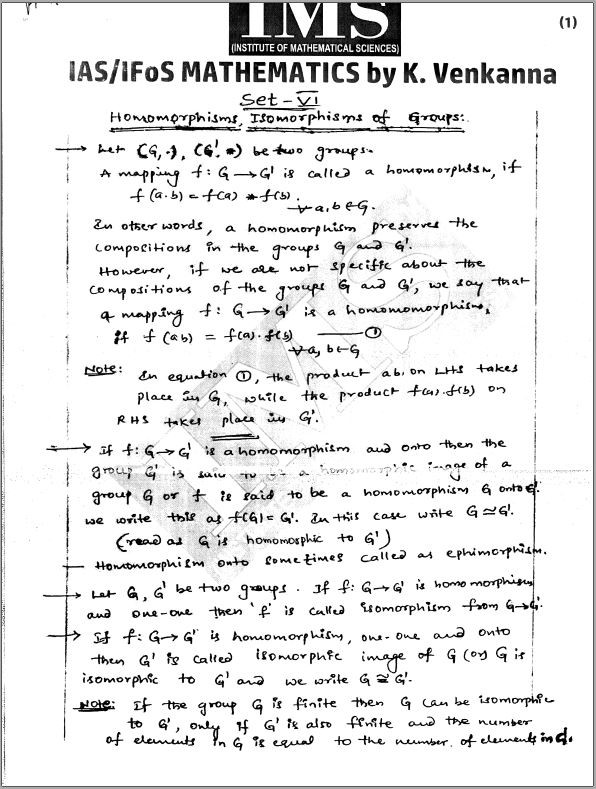 (1)
IMS
(INSTITUTE OF MATHEMATICAL SCIENCES)
IAS/IFoS MATHEMATICS by K. Venkanna
Set-VI
Homomorphisms, Isomorphisms of Groups:.
→ Let (G, ·), (G', *) be two groups.
A mapping f: G→G' is called a homomorphism, if
f(a·b) = f(a) * f(b).
∀ a, b ∈ G.
In other words, a homomorphism preserves the
compositions in the groups G and G'.
However, if we are not specific about the
compositions of the groups G and G', we say that
a mapping f: G→G' is a homomomorphism,
if f(ab) = f(a)·f(b) —— ①
∀ a, b ∈ G
Note: In equation ①, the product ab, on LHS takes
place in G, while the product f(a)·f(b) on
RHS takes place in G'.
→ If f: G→G' is a homomorphism and onto then the
group G' is said to be a homomorphic image of a
group G or f is said to be a homomorphism G onto G'.
we write this as f(G) = G'. In this case write G ≃ G'.
(read as G is homomosphic to G')
— Homomorphism onto sometimes called as ephimorphism.
→ Let G, G' be two groups. If f: G→G' is homomorphism
and one-one then 'f' is called isomorphism from G→G'.
→ If f: G→G' is homomorphism, one-one and onto
then G' is called isomorphic image of G (or) G is
isomorphic to G' and we write G ≅ G'.
Note: If the group G is finite then G can be isomorphic
to G', only if G' is also finite and the number
of elements in G is equal to the number of elements in G'.
IMS